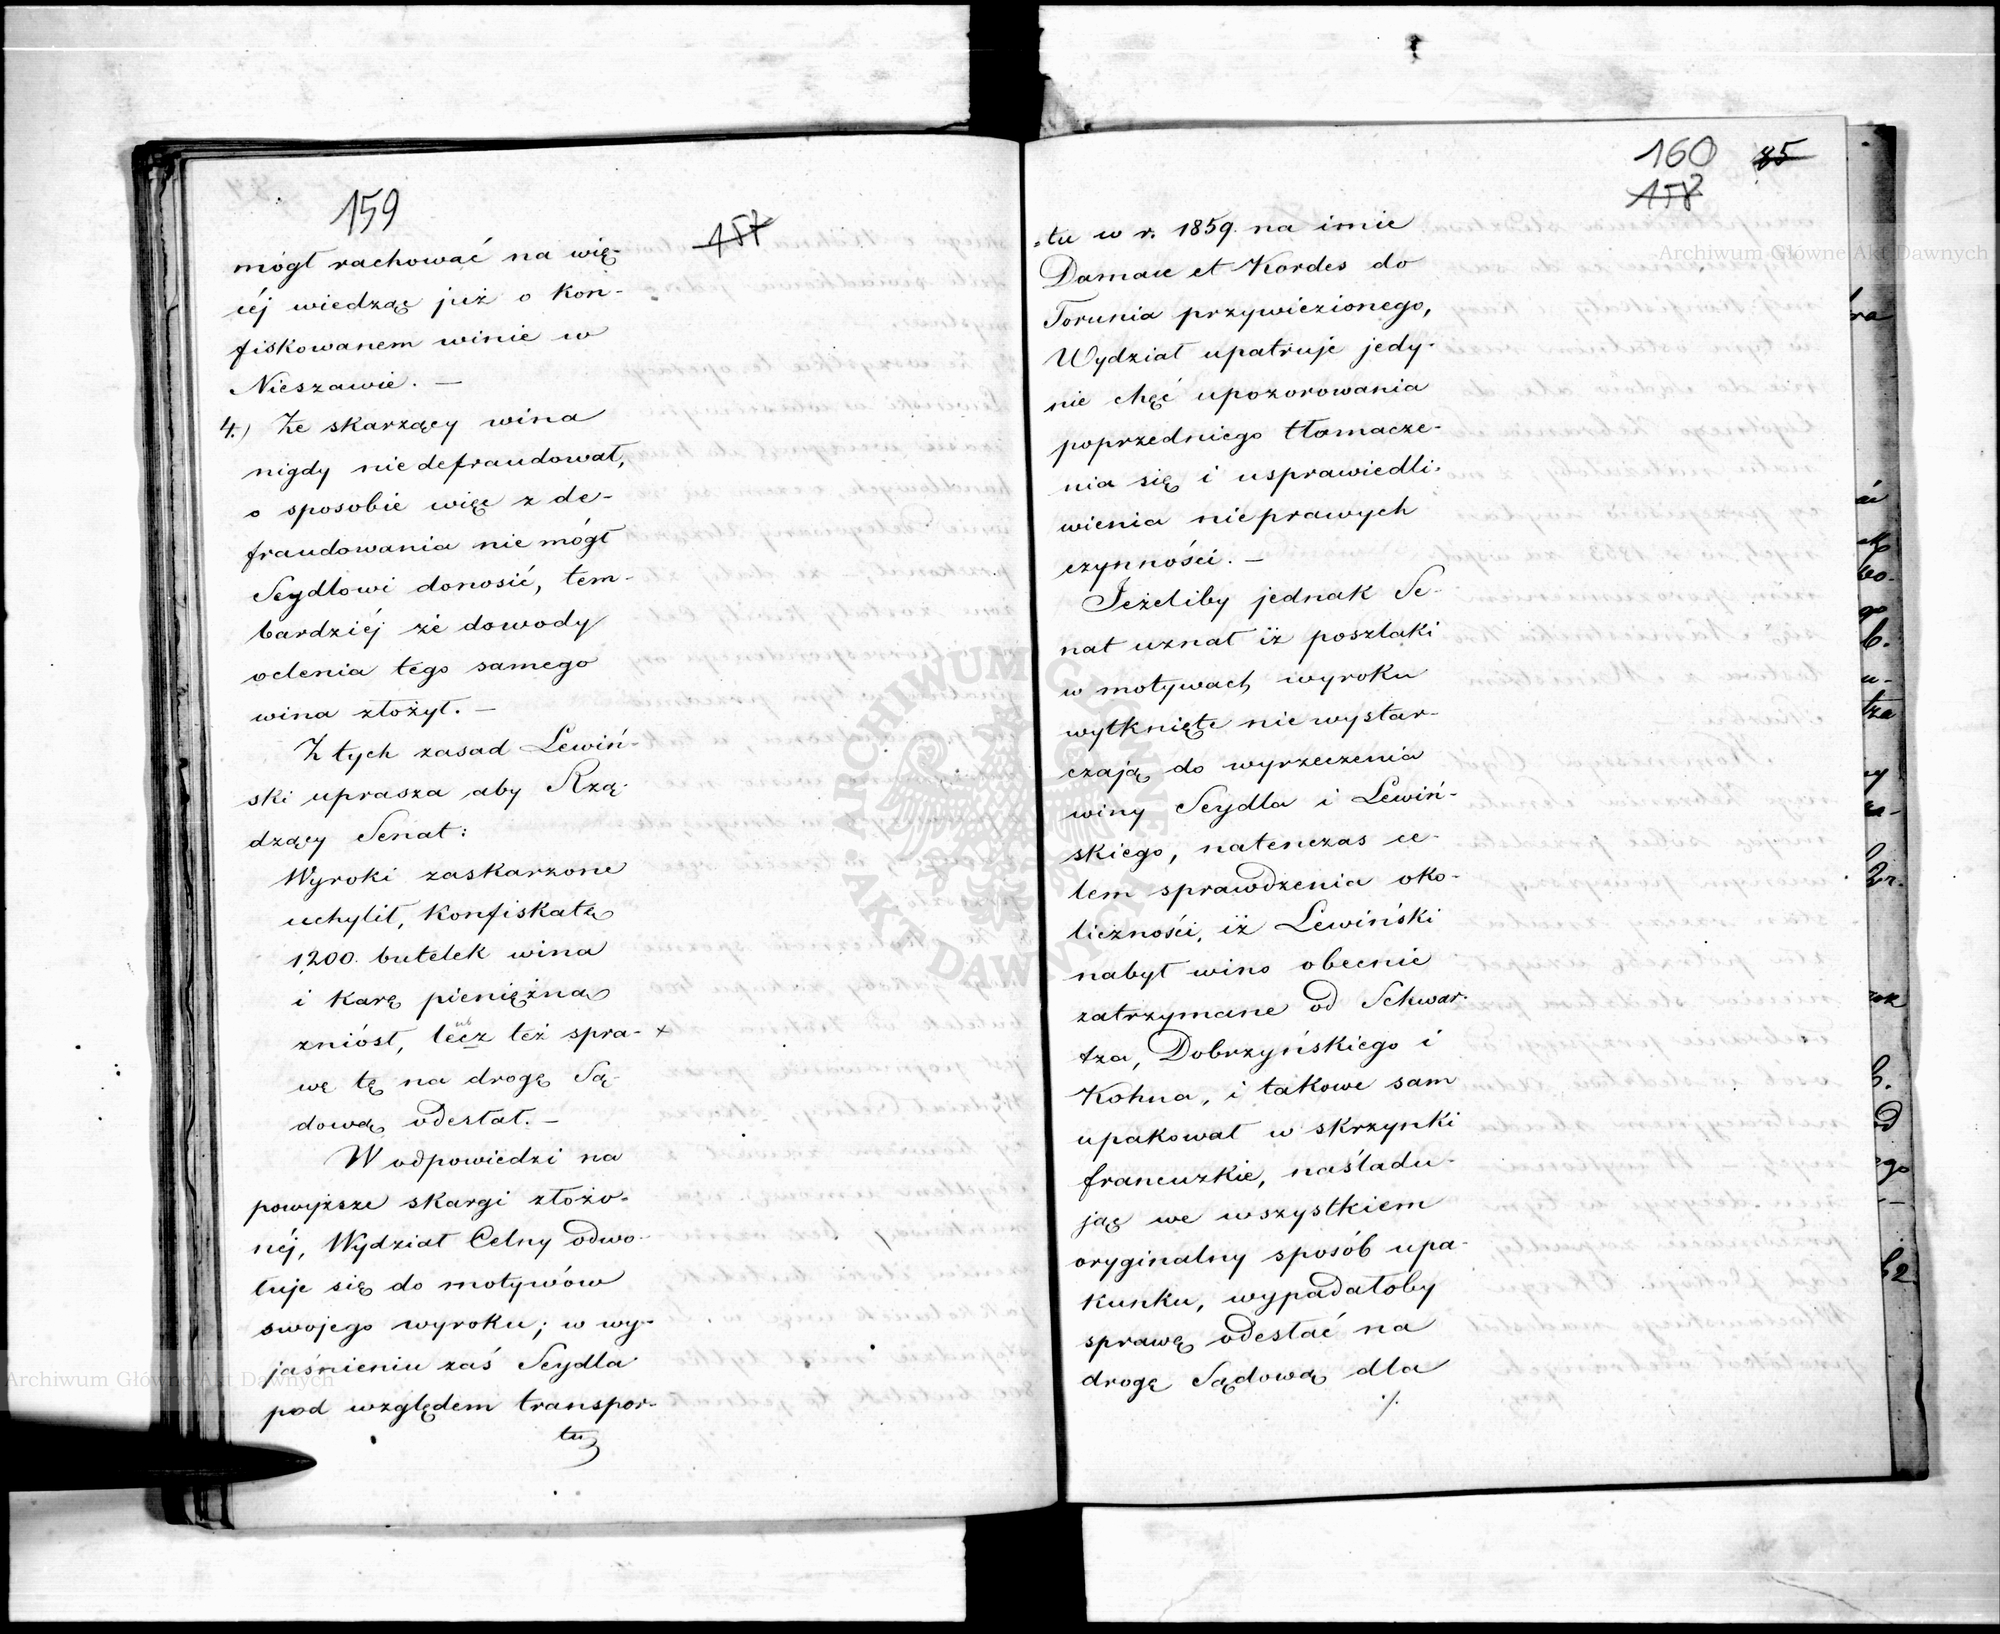 159
157
mógł rachować na wię-
céj wiedząc już o kon-
fiskowanem winie w
Nieszawie. —
4.) Że skarżący wina
nigdy nie defraudował,
o sposobie więc z de-
fraudowania nie mógł
Seydlowi donosić, tem-
bardziéj że dowody
oclenia tego samego
wina złożył. —
Z tych zasad Lewiń-
ski uprasza aby Rzą-
dzący Senat:
Wyroki zaskarzone
uchylił, konfiskatę
1200. butelek wina
i karę pieniężną
zniósł, lecz też spra- ×
wę tę na drogę Są-
dową odesłał. —
W odpowiedzi na
powyższe skargi złożo-
néj, Wydział Celny odwo-
łuje się do motywów
swojego wyroku; w wy-
jaśnieniu zaś Seydla
pod względem transpor-
tu
160 85
158
-tu w r. 1859. na imie
et Kordes do
Torunia przywiezionego,
Wydział upatruje jedy-
nie chęć upozorowania
poprzedniego tłomacze-
nia się i usprawiedli-
wienia nieprawych
czynności. —
Jeżeliby jednak Se-
nat uznał iż poszlaki
w motywach wyroku
wytknięte nie wystar-
czają do wyrzeczenia
winy Seydla i Lewiń-
skiego, natenczas ce-
lem sprawdzenia oko-
liczności, iż Lewiński
nabył wino obecnie
zatrzymane od Schwar-
tza, Dobrzyńskiego i
Kohna, i takowe sam
upakował w skrzynki
francuzkie, naśladu-
jąc we wszystkiem
oryginalny sposób upa-
kunku, wypadałoby
sprawę odesłać na
drogę Sądową dla
./.
Archiwum Główne Akt Dawnych
Archiwum Główne Akt Dawnych
ARCHIWUM GŁÓWNE AKT DAWNYCH